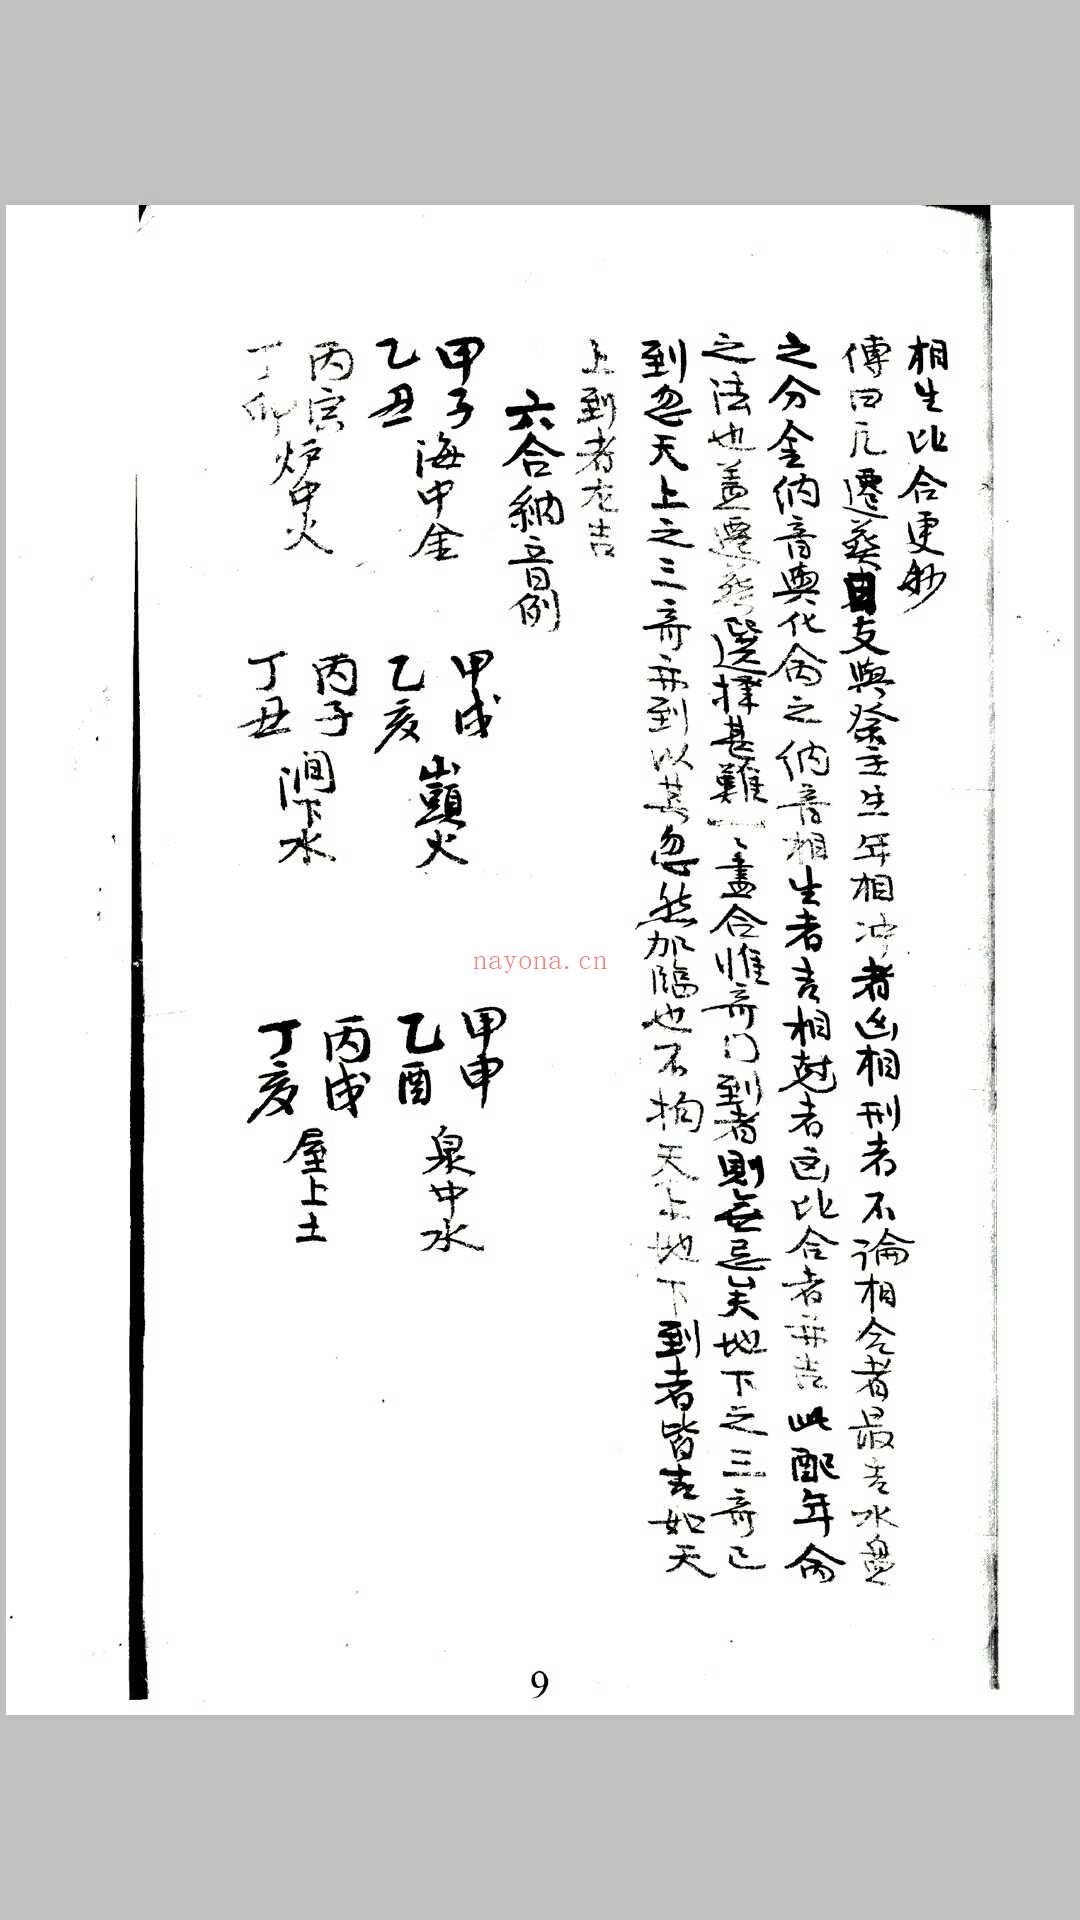 相生比合更妙
傳曰凡遷葬日支與祭主生年相冲者凶相刑者不論相合者最吉水盤
之分金納音與化命之納音相生者吉相尅者凶比合者亦吉此配年命
之法也蓋遷葬選擇甚難一一盡合惟奇门到者則無忌矣地下之三奇已
到忽天上之三奇亦到以其忽然加臨也不拘天上地下到者皆吉如天
上到者尤吉
六合納音例
甲子 乙丑 海中金
甲戌 乙亥 山頭火
甲申 乙酉 泉中水
丙寅 丁卯 炉中火
丙子 丁丑 澗下水
丙戌 丁亥 屋上土
nayona.cn
9